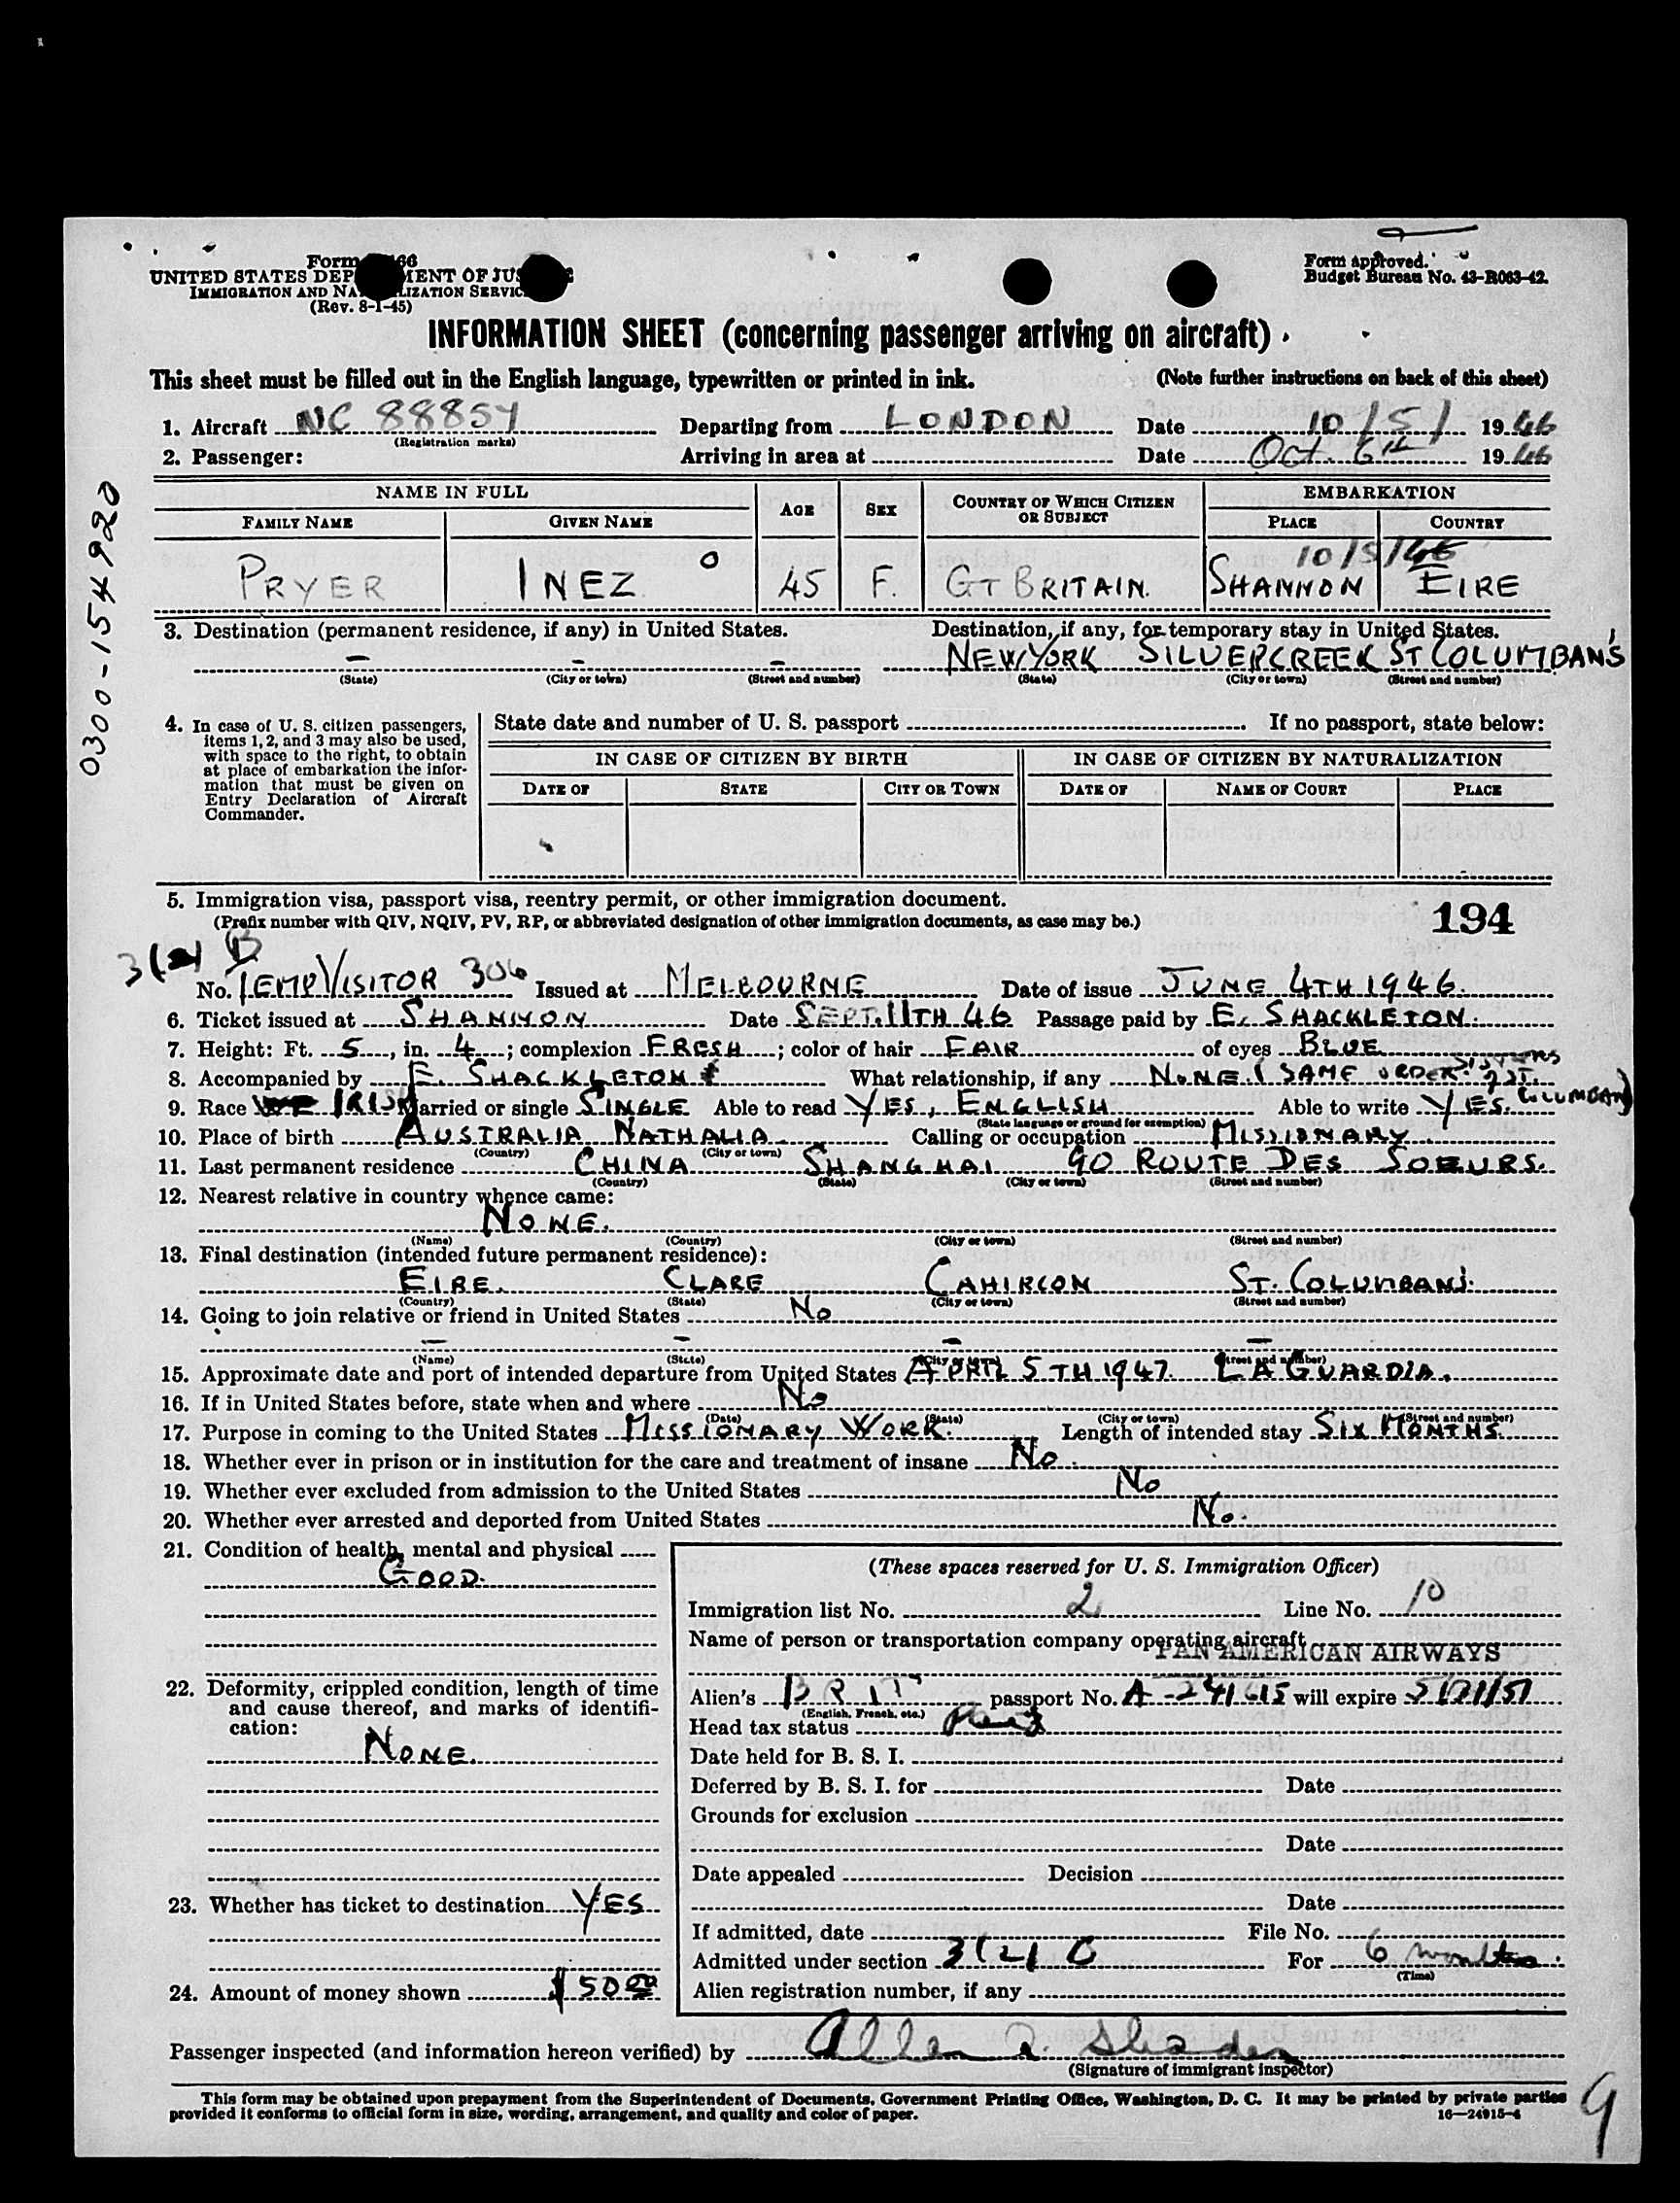 Form 66
UNITED STATES DEP MENT OF JUS
IMMIGRATION AND NA LIZATION SERVIC
(Rev. 8-1-45)
Form approved.
Budget Bureau No. 43-R063-42.
INFORMATION SHEET (concerning passenger arriving on aircraft)
This sheet must be filled out in the English language, typewritten or printed in ink. (Note further instructions on back of this sheet)
1. Aircraft NC 88857 Departing from LONDON Date 10/5/ 1946
(Registration marks)
2. Passenger: Arriving in area at Date Oct. 6th 1946
0300-154920
NAME IN FULL AGE SEX COUNTRY OF WHICH CITIZEN OR SUBJECT EMBARKATION
FAMILY NAME GIVEN NAME PLACE COUNTRY
10/5/46
PRYER INEZ 45 F. GT BRITAIN. SHANNON EIRE
3. Destination (permanent residence, if any) in United States. Destination, if any, for temporary stay in United States.
— — — NEW YORK SILVERCREEK ST COLUMBAN'S
(State) (City or town) (Street and number) (State) (City or town) (Street and number)
4. In case of U. S. citizen passengers, items 1, 2, and 3 may also be used, with space to the right, to obtain at place of embarkation the information that must be given on Entry Declaration of Aircraft Commander.
State date and number of U. S. passport If no passport, state below:
IN CASE OF CITIZEN BY BIRTH IN CASE OF CITIZEN BY NATURALIZATION
DATE OF STATE CITY OR TOWN DATE OF NAME OF COURT PLACE
5. Immigration visa, passport visa, reentry permit, or other immigration document.
(Prefix number with QIV, NQIV, PV, RP, or abbreviated designation of other immigration documents, as case may be.) 194
3(2) B
No. TEMP VISITOR 306 Issued at MELBOURNE Date of issue JUNE 4TH 1946.
6. Ticket issued at SHANNON Date SEPT. 11TH 46 Passage paid by E. SHACKLETON.
7. Height: Ft. 5, in. 4; complexion FRESH; color of hair FAIR of eyes BLUE
8. Accompanied by E. SHACKLETON What relationship, if any NONE. (SAME ORDER. SISTERS OF ST. COLUMBAN)
9. Race IRISH Married or single SINGLE Able to read YES, ENGLISH Able to write YES.
(State language or ground for exemption)
10. Place of birth AUSTRALIA NATHALIA Calling or occupation MISSIONARY
(Country) (City or town)
11. Last permanent residence CHINA SHANGHAI 90 ROUTE DES SOEURS.
(Country) (State) (City or town) (Street and number)
12. Nearest relative in country whence came:
NONE.
(Name) (Country) (City or town) (Street and number)
13. Final destination (intended future permanent residence):
EIRE. CLARE CAHIRCON ST. COLUMBANS.
(Country) (State) (City or town) (Street and number)
14. Going to join relative or friend in United States No
— — — —
(Name) (State) (City or town) (Street and number)
15. Approximate date and port of intended departure from United States APRIL 5TH 1947. LA GUARDIA.
16. If in United States before, state when and where No
(Date) (State) (City or town) (Street and number)
17. Purpose in coming to the United States MISSIONARY WORK. Length of intended stay SIX MONTHS.
18. Whether ever in prison or in institution for the care and treatment of insane No.
19. Whether ever excluded from admission to the United States No
20. Whether ever arrested and deported from United States No.
21. Condition of health, mental and physical
GOOD.
22. Deformity, crippled condition, length of time and cause thereof, and marks of identification:
NONE.
23. Whether has ticket to destination YES
24. Amount of money shown $50.00
(These spaces reserved for U. S. Immigration Officer)
Immigration list No. 2 Line No. 10
Name of person or transportation company operating aircraft
PAN AMERICAN AIRWAYS
Alien's BRIT passport No. A-241615 will expire 5/21/51
(English, French, etc.)
Head tax status
Date held for B. S. I.
Deferred by B. S. I. for Date
Grounds for exclusion
Date
Date appealed Decision
Date
If admitted, date File No.
Admitted under section 3(2) C For 6 months.
(Time)
Alien registration number, if any
Passenger inspected (and information hereon verified) by
(Signature of immigrant inspector)
This form may be obtained upon prepayment from the Superintendent of Documents, Government Printing Office, Washington, D. C. It may be printed by private parties
provided it conforms to official form in size, wording, arrangement, and quality and color of paper. 16—24915-4
9